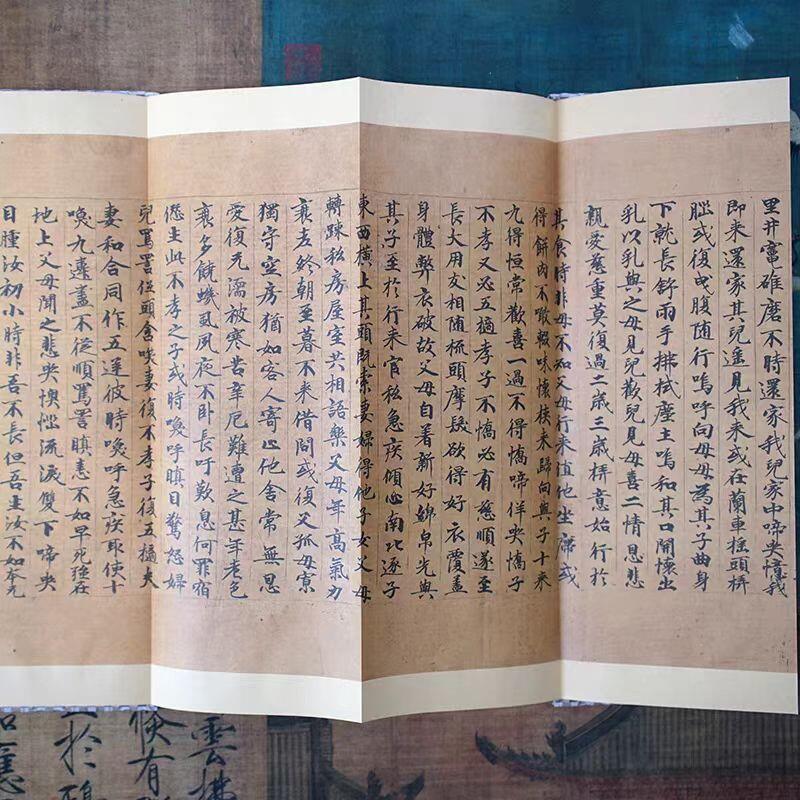 里井竈碓磨不時還家我兒家中啼哭憶我
即来還家其兒遙見我来或在蘭車搖頭弄
腦或復曳腹随行嗚呼向母母為其子曲身
下就長舒兩手拂拭塵土嗚和其口開懷出
乳以乳與之母見兒歡兒見母喜二情恩悲
親愛慈重莫復過二歲三歲弄意始行於
其食時非母不知父母行来值他坐席或
得餅肉不敢輟味懷挾来歸向與子十来
九得恒常歡喜一過不得憍啼佯哭憍子
不孝又必五擿孝子不憍必有慈順遂至
長大朋友相随梳頭摩髮欲得好衣覆蓋
身體弊衣破故父母自着新好綿帛先與
其子至於行来官私急疾傾心南北逐子
東西橫上其頭既索妻婦得他子女父母
轉踈私房屋室共相語樂父母年高氣力
衰老終朝至暮不来借問或復父孤母寡
獨守空房猶如客人寄止他舍常無恩
愛復无濡被寒苦辛厄難遭之甚年老色
衰多饒蟣虱夙夜不卧長吁歎息何罪宿
愆生此不孝之子或時喚呼瞋目驚怒婦
兒罵詈伍頭含唉妻復不孝子復五擿夫
妻和合同作五逆彼時喚呼急疾取使十
喚九違盡不從順罵詈瞋恚不如早死強在
地上父母聞之悲哭懊惱流淚雙下啼哭
目腫汝初小時非吾不長但吾生汝不如本无
雲拂
倏有
至於
應